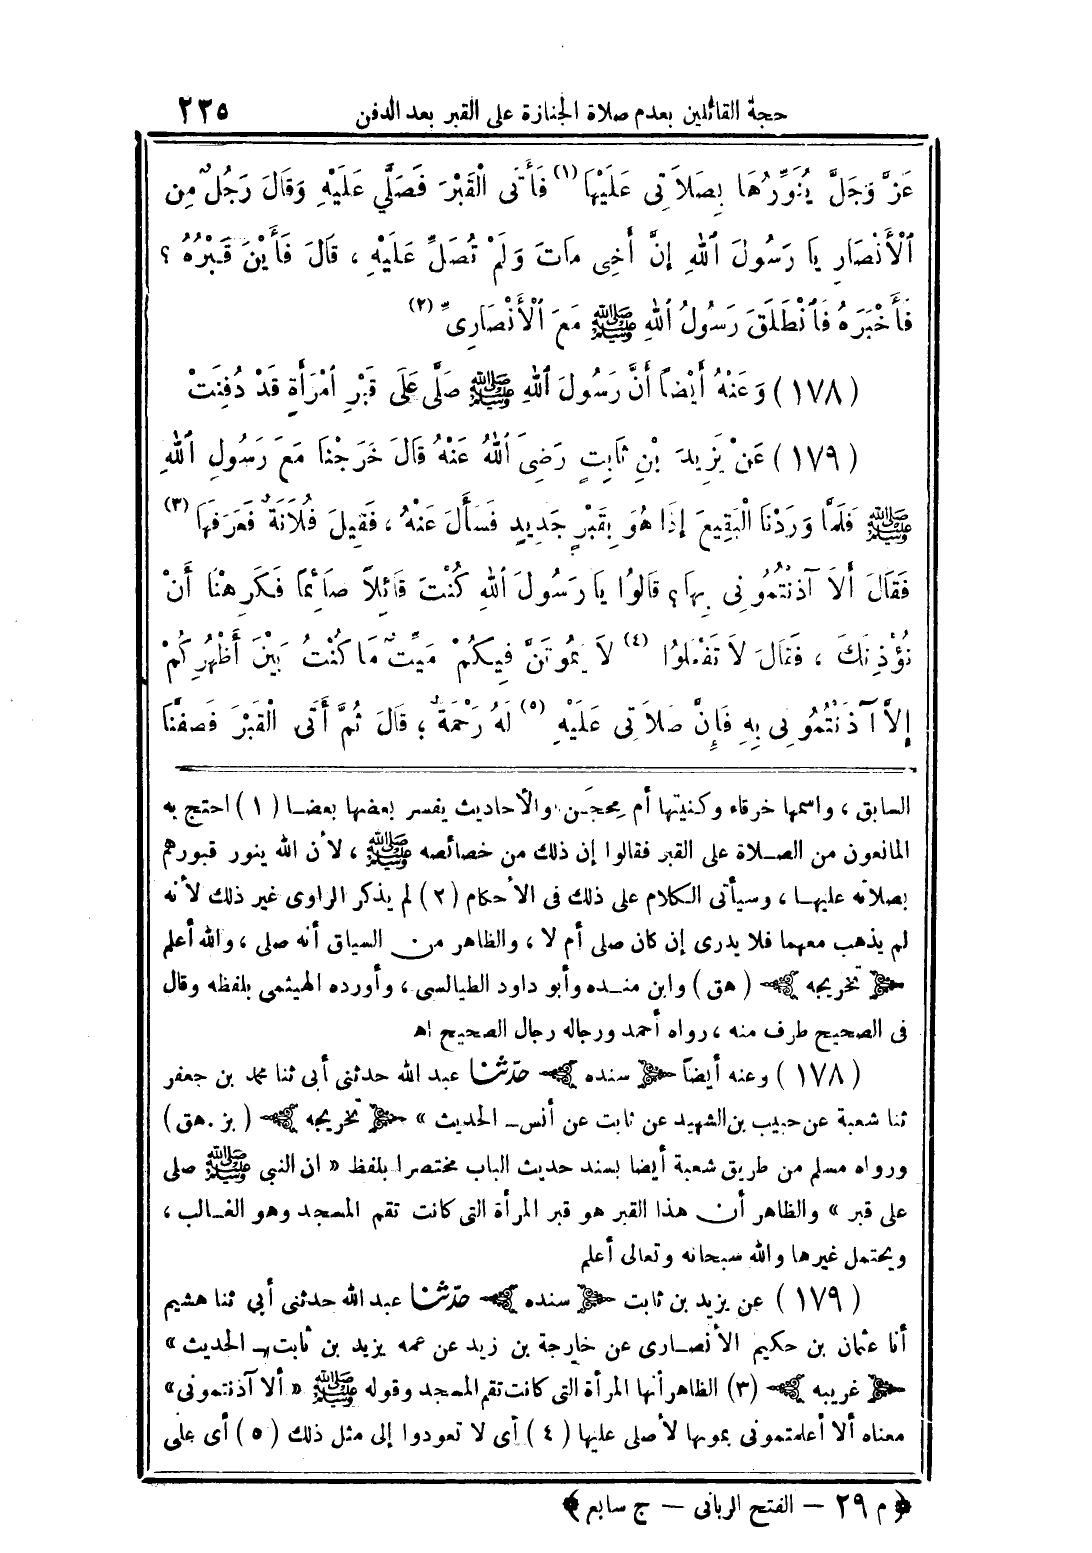 حجة القائلين بعدم صلاة الجنازة على القبر بعد الدفن ٢٢٥
عَزَّ وَجَلَّ يُنَوِّرُهَا بِصَلَاتِى عَلَيْهَا (١) فَأَتَى الْقَبْرَ فَصَلَّى عَلَيْهِ وَقَالَ رَجُلٌ مِن
الْأَنْصَارِ يَا رَسُولَ اللهِ إِنَّ أَخِى مَاتَ وَلَمْ تُصَلِّ عَلَيْهِ ، قَالَ فَأَيْنَ قَبْرُهُ ؟
فَأَخْبَرَهُ فَانْطَلَقَ رَسُولُ اللهِ ﷺ مَعَ الْأَنْصَارِىِّ (٢)
(١٧٨) وَعَنْهُ أَيْضًا أَنَّ رَسُولَ اللهِ ﷺ صَلَّى عَلَى قَبْرِ امْرَأَةٍ قَدْ دُفِنَتْ
(١٧٩) عَنْ يَزِيدَ بْنِ ثَابِتٍ رَضِىَ اللهُ عَنْهُ قَالَ خَرَجْنَا مَعَ رَسُولِ اللهِ
ﷺ فَلَمَّا وَرَدْنَا الْبَقِيعَ إِذَا هُوَ بِقَبْرٍ جَدِيدٍ فَسَأَلَ عَنْهُ ، فَقِيلَ فُلَانَةُ فَعَرَفَهَا (٣)
فَقَالَ أَلَا آذَنْتُمُونِى بِهَا ؟ قَالُوا يَا رَسُولَ اللهِ كُنْتَ قَائِلًا صَائِمًا فَكَرِهْنَا أَنْ
نُؤْذِنَكَ ، فَقَالَ لَا تَفْعَلُوا (٤) لَا يَمُوتَنَّ فِيكُمْ مَيِّتٌ مَا كُنْتُ بَيْنَ أَظْهُرِكُمْ
إِلَّا آذَنْتُمُونِى بِهِ فَإِنَّ صَلَاتِى عَلَيْهِ (٥) لَهُ رَحْمَةٌ ، قَالَ ثُمَّ أَتَى الْقَبْرَ فَصَفَّنَا
السابق ، واسمها خرقاء وكنيتها أم مِحجَن والأحاديث يفسر بعضها بعضا (١) احتج به
المانعون من الصلاة على القبر فقالوا إن ذلك من خصائصه ﷺ ، لأن الله ينور قبورهم
بصلاته عليها ، وسيأتى الكلام على ذلك فى الأحكام (٢) لم يذكر الراوى غير ذلك لأنه
لم يذهب معهما فلا يدرى إن كان صلى أم لا ، والظاهر من السياق أنه صلى ، والله أعلم
﴿ تخريجه ﴾ (هق) وابن منده وأبو داود الطيالسى ، وأورده الهيثمى بلفظه وقال
فى الصحيح طرف منه ، رواه أحمد ورجاله رجال الصحيح اهـ
(١٧٨) وعنه أيضاً ﴿ سنده ﴾ حدّثنا عبد الله حدثنى أبى ثنا محمد بن جعفر
ثنا شعبة عن حبيب بن الشهيد عن ثابت عن أنس ـ الحديث » ﴿ تخريجه ﴾ (بز . هق)
ورواه مسلم من طريق شعبة أيضا بسند حديث الباب مختصرا بلفظ « ان النبي ﷺ صلى
على قبر » والظاهر أن هذا القبر هو قبر المرأة التى كانت تقم المسجد وهو الغالب ،
ويحتمل غيرها والله سبحانه وتعالى أعلم
(١٧٩) عن يزيد بن ثابت ﴿ سنده ﴾ حدّثنا عبد الله حدثنى أبي ثنا هشيم
أنا عثمان بن حكيم الأنصارى عن خارجة بن زيد عن عمه يزيد بن ثابت ـ الحديث »
﴿ غريبه ﴾ (٣) الظاهر أنها المرأة التى كانت تقم المسجد وقوله ﷺ « ألا آذنتمونى »
معناه ألا أعلمتمونى بموتها لأصلى عليها (٤) أى لا تعودوا إلى مثل ذلك (٥) أى على
﴿ م ٢٩ – الفتح الربانى – ج سابع ﴾